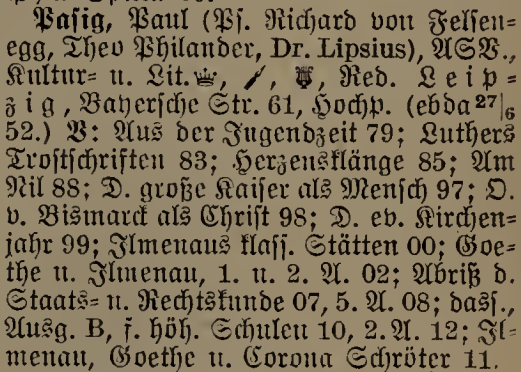 Pasig, Paul (Ps. Richard von Felsen-
egg, Theo Philander, Dr. Lipsius), ASV.,
Kultur- u. Lit. Red. Leip-
zig, Bayersche Str. 61, Hochp. (ebda 27/6
52.) V: Aus der Jugendzeit 79; Luthers
Trostschriften 83; Herzensklänge 85; Am
Nil 88; D. große Kaiser als Mensch 97; O.
v. Bismarck als Christ 98; D. ev. Kirchen-
jahr 99; Ilmenaus klass. Stätten 00; Goe-
the u. Ilmenau, 1. u. 2. A. 02; Abriß d.
Staats- u. Rechtskunde 07, 5. A. 08; dass.,
Ausg. B, f. höh. Schulen 10, 2. A. 12; Il-
menau, Goethe u. Corona Schröter 11.